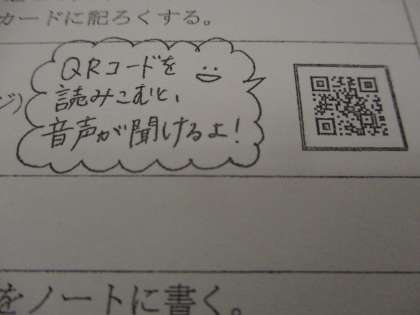 カードに記ろくする。
QRコードを
読みこむと、
ジ)
音声が聞けるよ!
をノートに書く。